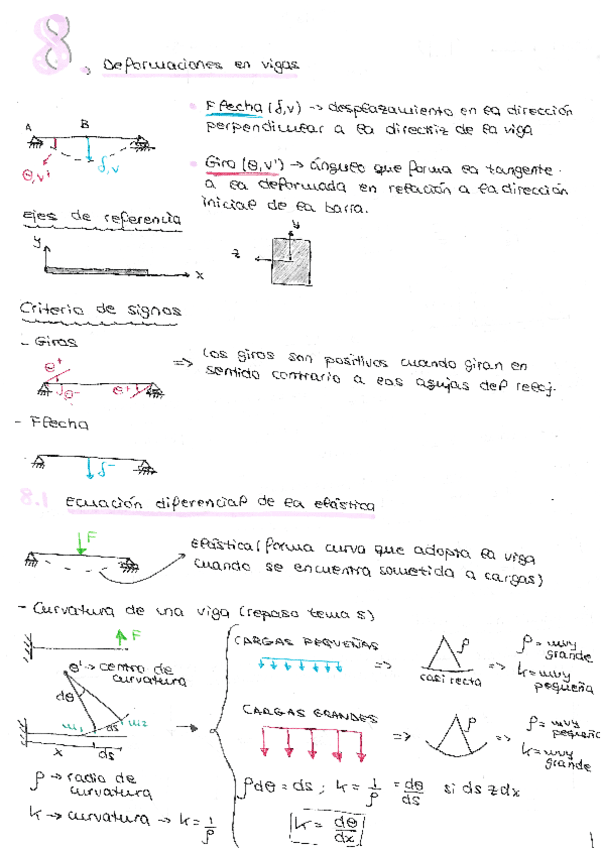 8. Deformaciones en vigas
Flecha (δ,v) -> desplazamiento en la dirección
perpendicular a la directriz de la viga
A B
θ,v' δ,v
Giro (θ,v') -> ángulo que forma la tangente
a la deformada en relación a la dirección
inicial de la barra.
ejes de referencia
y x
y z
Criterio de signos
- Giros
θ+ θ- θ+
=> Los giros son positivos cuando giran en
sentido contrario a las agujas del reloj.
- Flecha
δ-
8.1 Ecuación diferencial de la elástica
F
elástica (forma curva que adopta la viga
cuando se encuentra sometida a cargas)
- Curvatura de una viga (repaso tema 5)
F
θ' -> centro de
curvatura
dθ
m1 ds m2
x ds
ρ -> radio de
curvatura
k -> curvatura -> k = 1/ρ
CARGAS PEQUEÑAS => ρ casi recta => ρ = muy grande
k = muy pequeña
CARGAS GRANDES => ρ => ρ = muy pequeño
k = muy grande
ρdθ = ds ; k = 1/ρ = dθ/ds si ds ≈ dx
k = dθ/dx